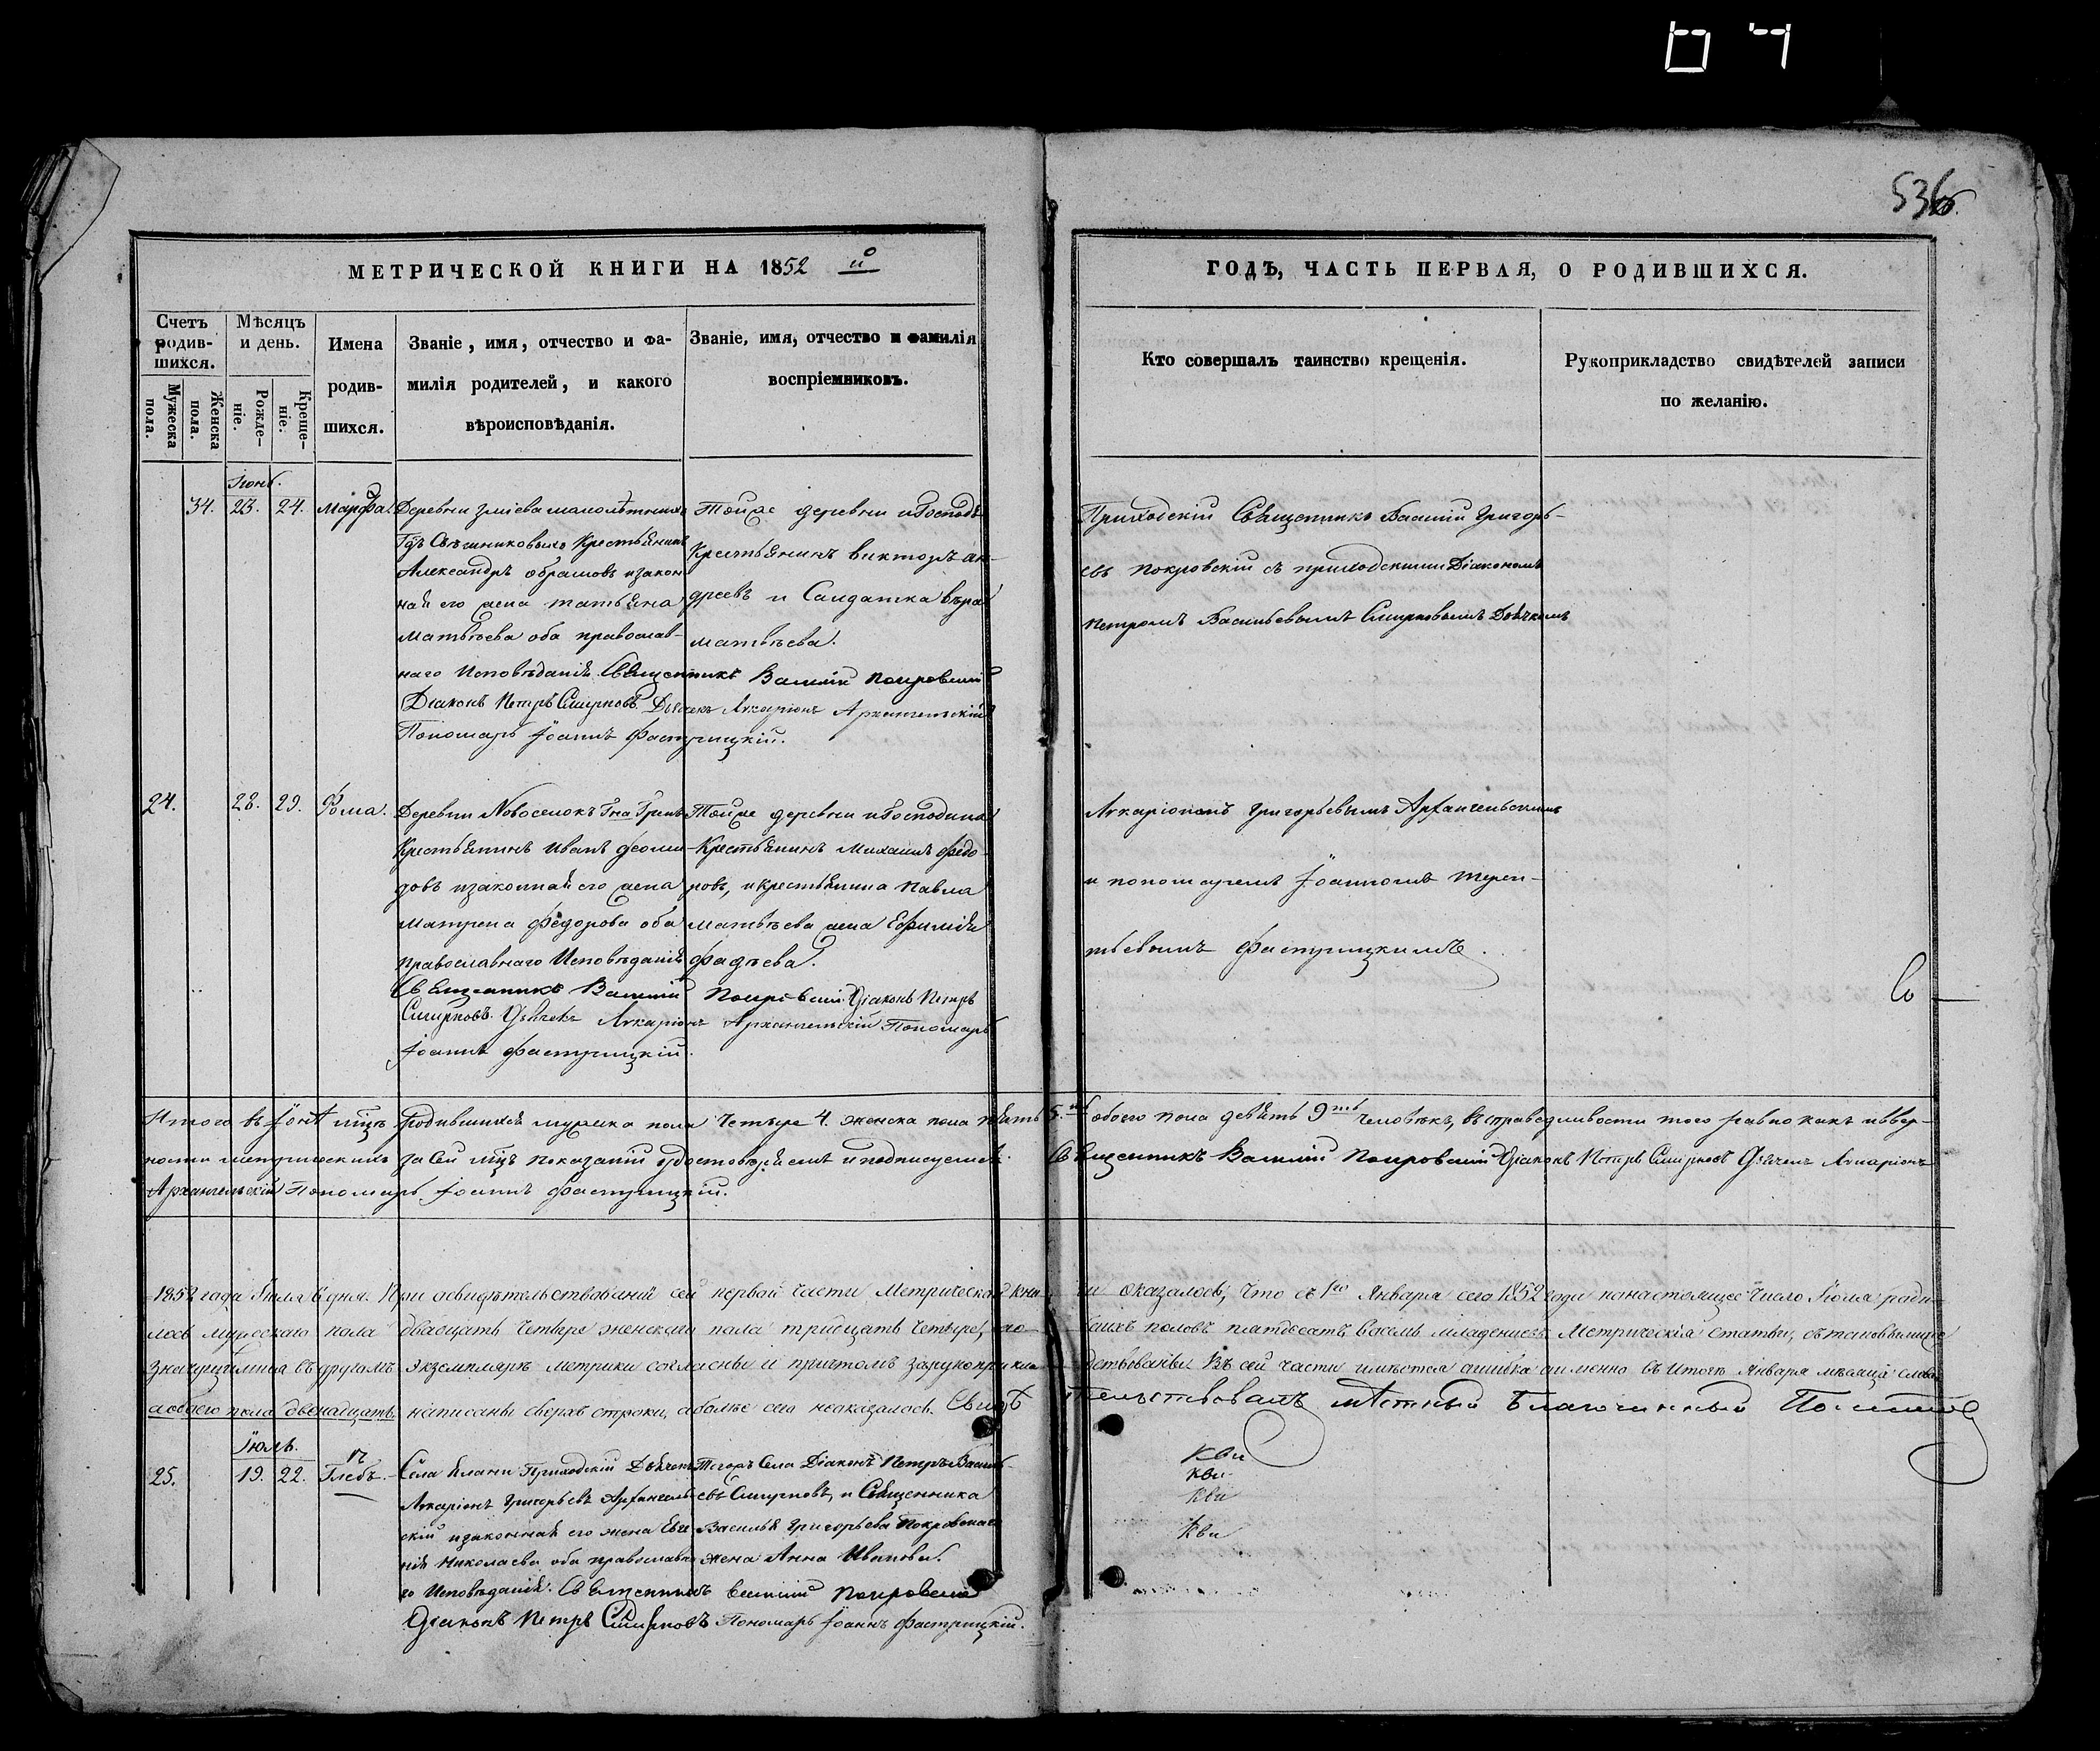 536
МЕТРИЧЕСКОЙ КНИГИ НА 1852 й
ГОДЪ, ЧАСТЬ ПЕРВАЯ, О РОДИВШИХСЯ.
Счетъ родив-шихся.
Мужеска пола.
Женска пола.
Мѣсяцъ и день.
Рожде-ніе.
Креще-ніе.
Имена родив-шихся.
Званіе, имя, отчество и фа-
милія родителей, и какого
вѣроисповѣданія.
Званіе, имя, отчество и фамилія
воспріемниковъ.
Кто совершалъ таинство крещенія.
Рукоприкладство свидѣтелей записи
по желанію.
Іюнь.
34. 23. 24. Марфа.
Деревни Зміева малолѣтнихъ
Крестьянинъ
Александръ Абрамовъ изакон
ная его жена Татьяна
Матвѣева оба православ-
наго Исповѣданія. Священникъ Василій Покровскій
Діаконъ Петръ Смирновъ. Дьячекъ Иларіонъ Архангельскій
Пономарь Іоаннъ Фастрицкій.
Тойже деревни иГоспод
Крестьянинъ Викторъ Ан-
дреевъ и Салдатка Вѣра
Матвѣева.
Приходскій Священникъ Василій Григорь-
евъ Покровскій съ приходскими Діакономъ
Петромъ Васильевымъ Смирновымъ Дьячкомъ
24. 28. 29. Фома.
Деревни Новоселокъ Гна
Крестьянинъ Иванъ
довъ изаконная его жена
Матрена Федорова оба
Православнаго Исповѣданія
Священникъ Василій Покровскій Діаконъ Петръ
Смирновъ. Дьячекъ Иларіонъ Архангельскій Пономарь
Іоаннъ Фастрицкій.
Тойже деревни иГосподина
Крестьянинъ Михаилъ Федо-
ровъ, икрестьянина Павла
Матвѣева жена Ефимія
Фадѣева.
Иларіономъ Григорьевымъ Архангельскимъ
и пономаремъ Іоанномъ Терен-
тьевымъ Фастрицкимъ.
Итого въ Іюнѣ мцѣ родившихся мужеска пола четыре 4. женска пола пять 5.ть обоего пола девять 9ть человѣкъ, въ справедливости того равно какъ ивѣр-
ности метрическихъ за сей мцъ показаній удостовѣряемъ иподписуемся. Священникъ Василій Покровскій Діаконъ Петръ Смирновъ Дьячекъ Иларіонъ
Архангельскій Пономарь Іоаннъ Фастрицкій.
1852 года Іюля 6 дня. При освидѣтельствованіи сей первой части Метрической кни-ги оказалось, что съ 1го Января сего 1852 года понастоящее число Іюля роди-
лось мужескаго пола двадцать четыре женскаго пола тридцать четыре, а о-боихъ половъ пятдесятъ восемь младенцевъ. Метрическія статьи, сътаковымиже
значущимися въ другомъ экземплярѣ метрики согласны и притомъ зарукоприкла-дствованы. Въ сей части имѣется ошибка а именно въ Итогѣ Января мѣсяца слова
а обоего пола двенадцать написаны сверхъ строки, а болѣе сего неоказалось. Свидѣ-тельствовалъ мѣстный Благочинный
Іюль.
25. 19. 22. Глебъ.
Села Елани Приходскій Дьячекъ
Иларіонъ Григорьевъ Архангель-
скій изаконная его жена Евге-
нія Николаева оба православна
го Исповѣданія. Священникъ Василій Покровскій
Діаконъ Петръ Смирновъ Пономарь Іоаннъ Фастрицкій.
Тогожъ Села Діаконъ Петръ Василь-
евъ Смирновъ, и Священника
Василья Григорьева Покровскаго
жена Анна Иванова.